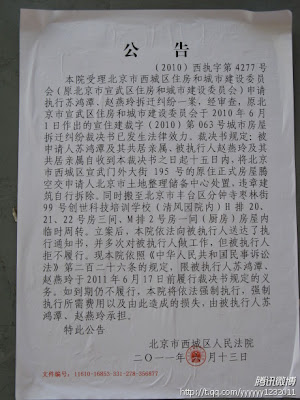 公 告
(2010)西执字第4277号
本院受理北京市西城区住房和城市建设委员
会(原北京市宣武区住房和城市建设委员会)申请
执行苏鸿潭、赵燕玲拆迁纠纷一案,经审查,原北
京市宣武区住房和城市建设委员会于2010年6
月1日作出的宣住建裁字(2010)第063号城市房屋
拆迁纠纷裁决书已发生法律效力。裁决书规定:被
申请人苏鸿潭及其共居亲属、被执行人赵燕玲及其
共居亲属自收到本裁决书之日起十五日内,将北京
市西城区宣武门外大街195号的原住正式房屋腾
空交申请人北京市土地整理储备中心处置,违章建
筑自行拆除。同时搬至北京市丰台区分钟寺寒林街
99号创世科技培训学校(清风国院内)H排20、
21、22号房三间、M排2号房一间(厨房)房屋内
临时周转。立案后,本院依法向被执行人送达了执
行通知书,并多次对被执行人做工作,但被执行人
拒不履行。现本院依据《中华人民共和国民事诉讼
法》第二百二十六条的规定,限被执行人苏鸿潭、
赵燕玲于2011年6月17日前履行裁决书规定的义
务。如到期仍不履行,本院将依法强制执行,强制
执行所需费用以及由此造成的损失,由被执行人苏
鸿潭、赵燕玲承担。
特此公告
北京市西城区人民法院
二〇一一年 月十三日
文件编号:
腾讯微博
http://t.qq.com/yyyyyy1232011